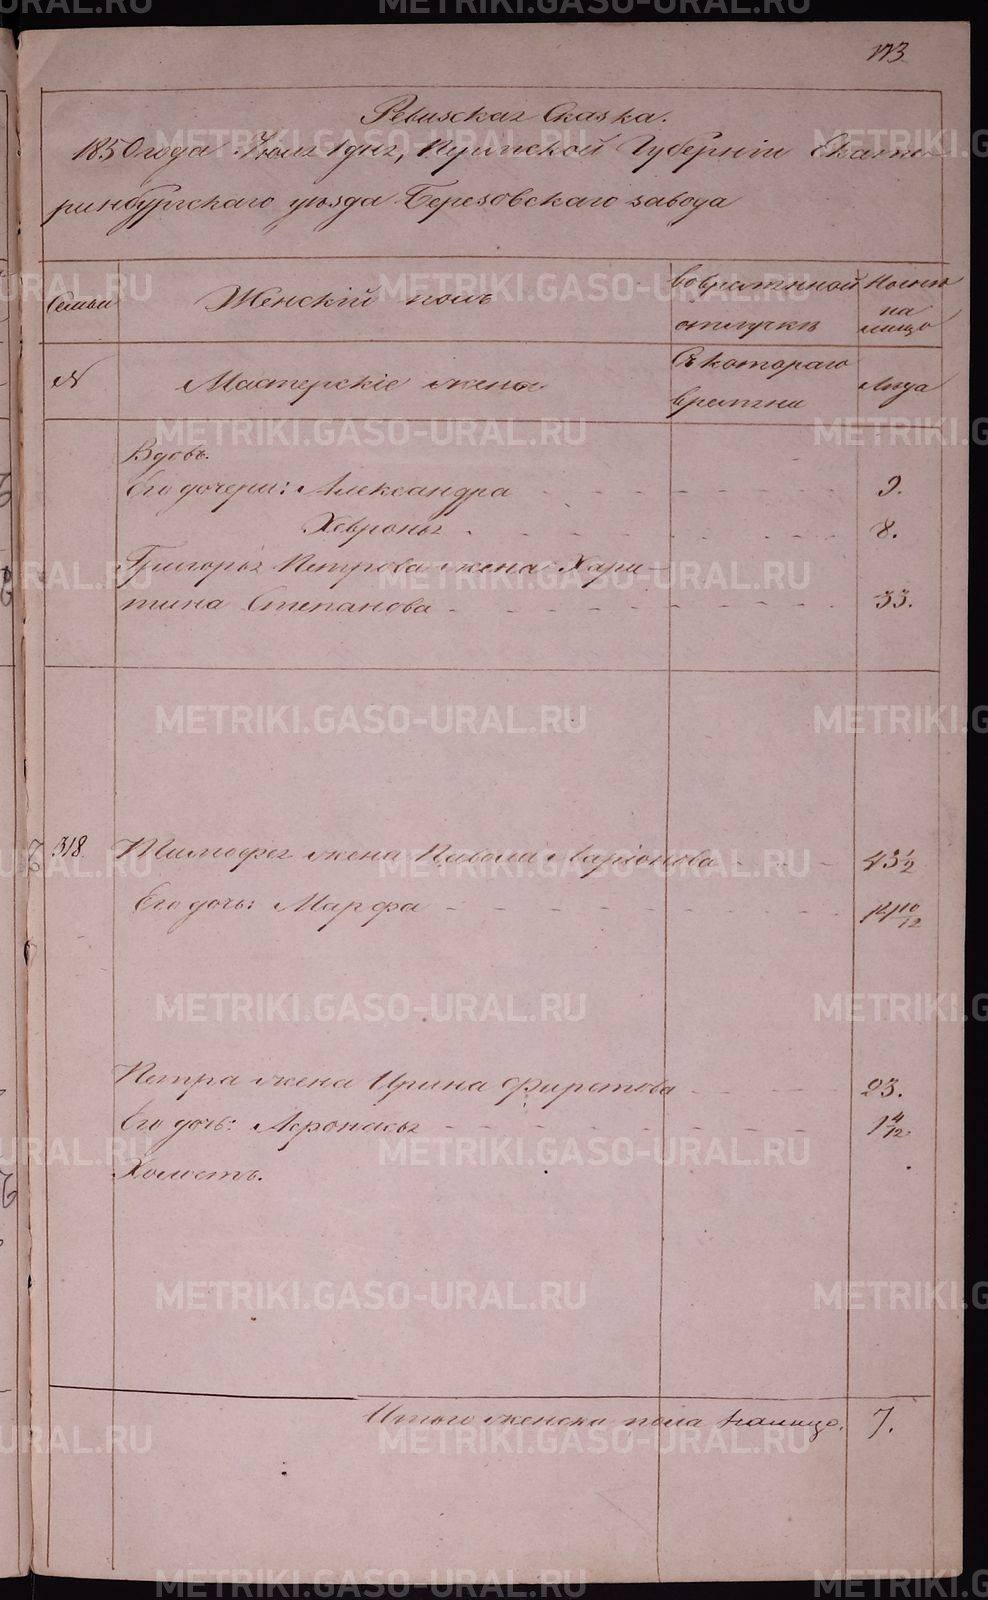 173
Ревизская Сказка.
1850 года Июля 1 дня, Пермской Губерніи Екате-
ринбургскаго уѣзда Березовскаго завода
Семьи
Женскій полъ
Во временной
отлучкѣ
Нынѣ
на
лицо
№
Мастерскіе жены
Съ котораго
времени
Лѣта
Вдовъ.
Его дочери: Александра 9.
Хевронья 8.
Григорья Петрова жена Хари-
тина Степанова 33.
318 Тимофея жена Ларіонова 43 1/2
Его дочь: Марфа 10/12
Петра жена Ирина Фирстова 23.
Его дочь: Афонасья 1 4/12
Холостъ.
Итого женска пола налицо. 7.
METRIKI.GASO-URAL.RU